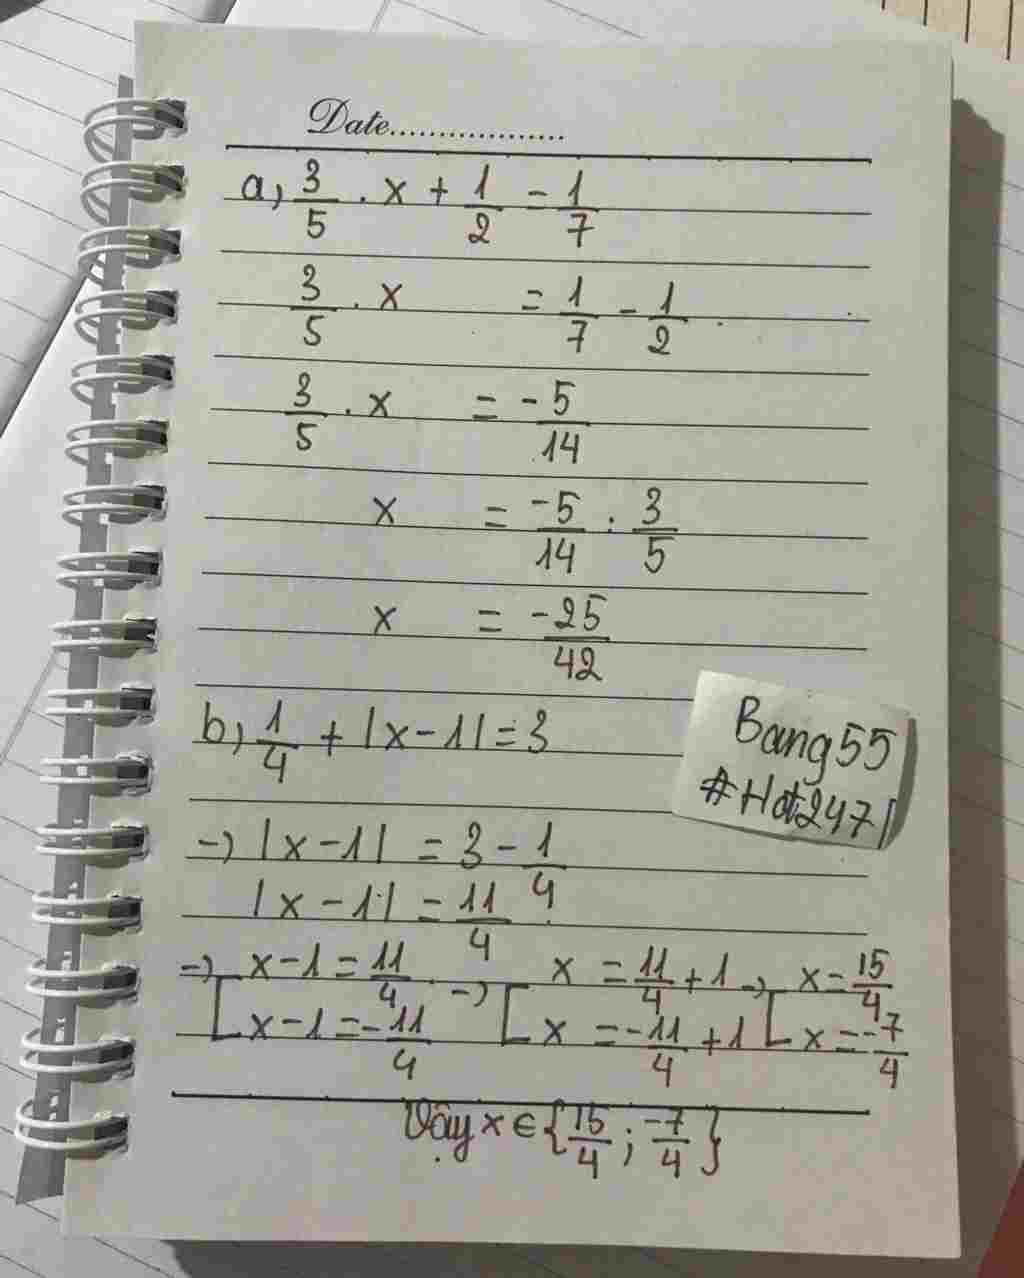 Date..................
a, 3/5 . x + 1/2 = 1/7
3/5 . x = 1/7 - 1/2
3/5 . x = -5/14
x = -5/14 : 3/5
x = -25/42
b, 1/4 + |x - 1| = 3
Bang55
#Hot247
-) |x - 1| = 3 - 1/4
|x - 1| = 11/4
-) [ x - 1 = 11/4 -) [ x = 11/4 + 1 -) [ x = 15/4
x - 1 = -11/4 x = -11/4 + 1 x = -7/4
Vậy x ∈ {15/4 ; -7/4}